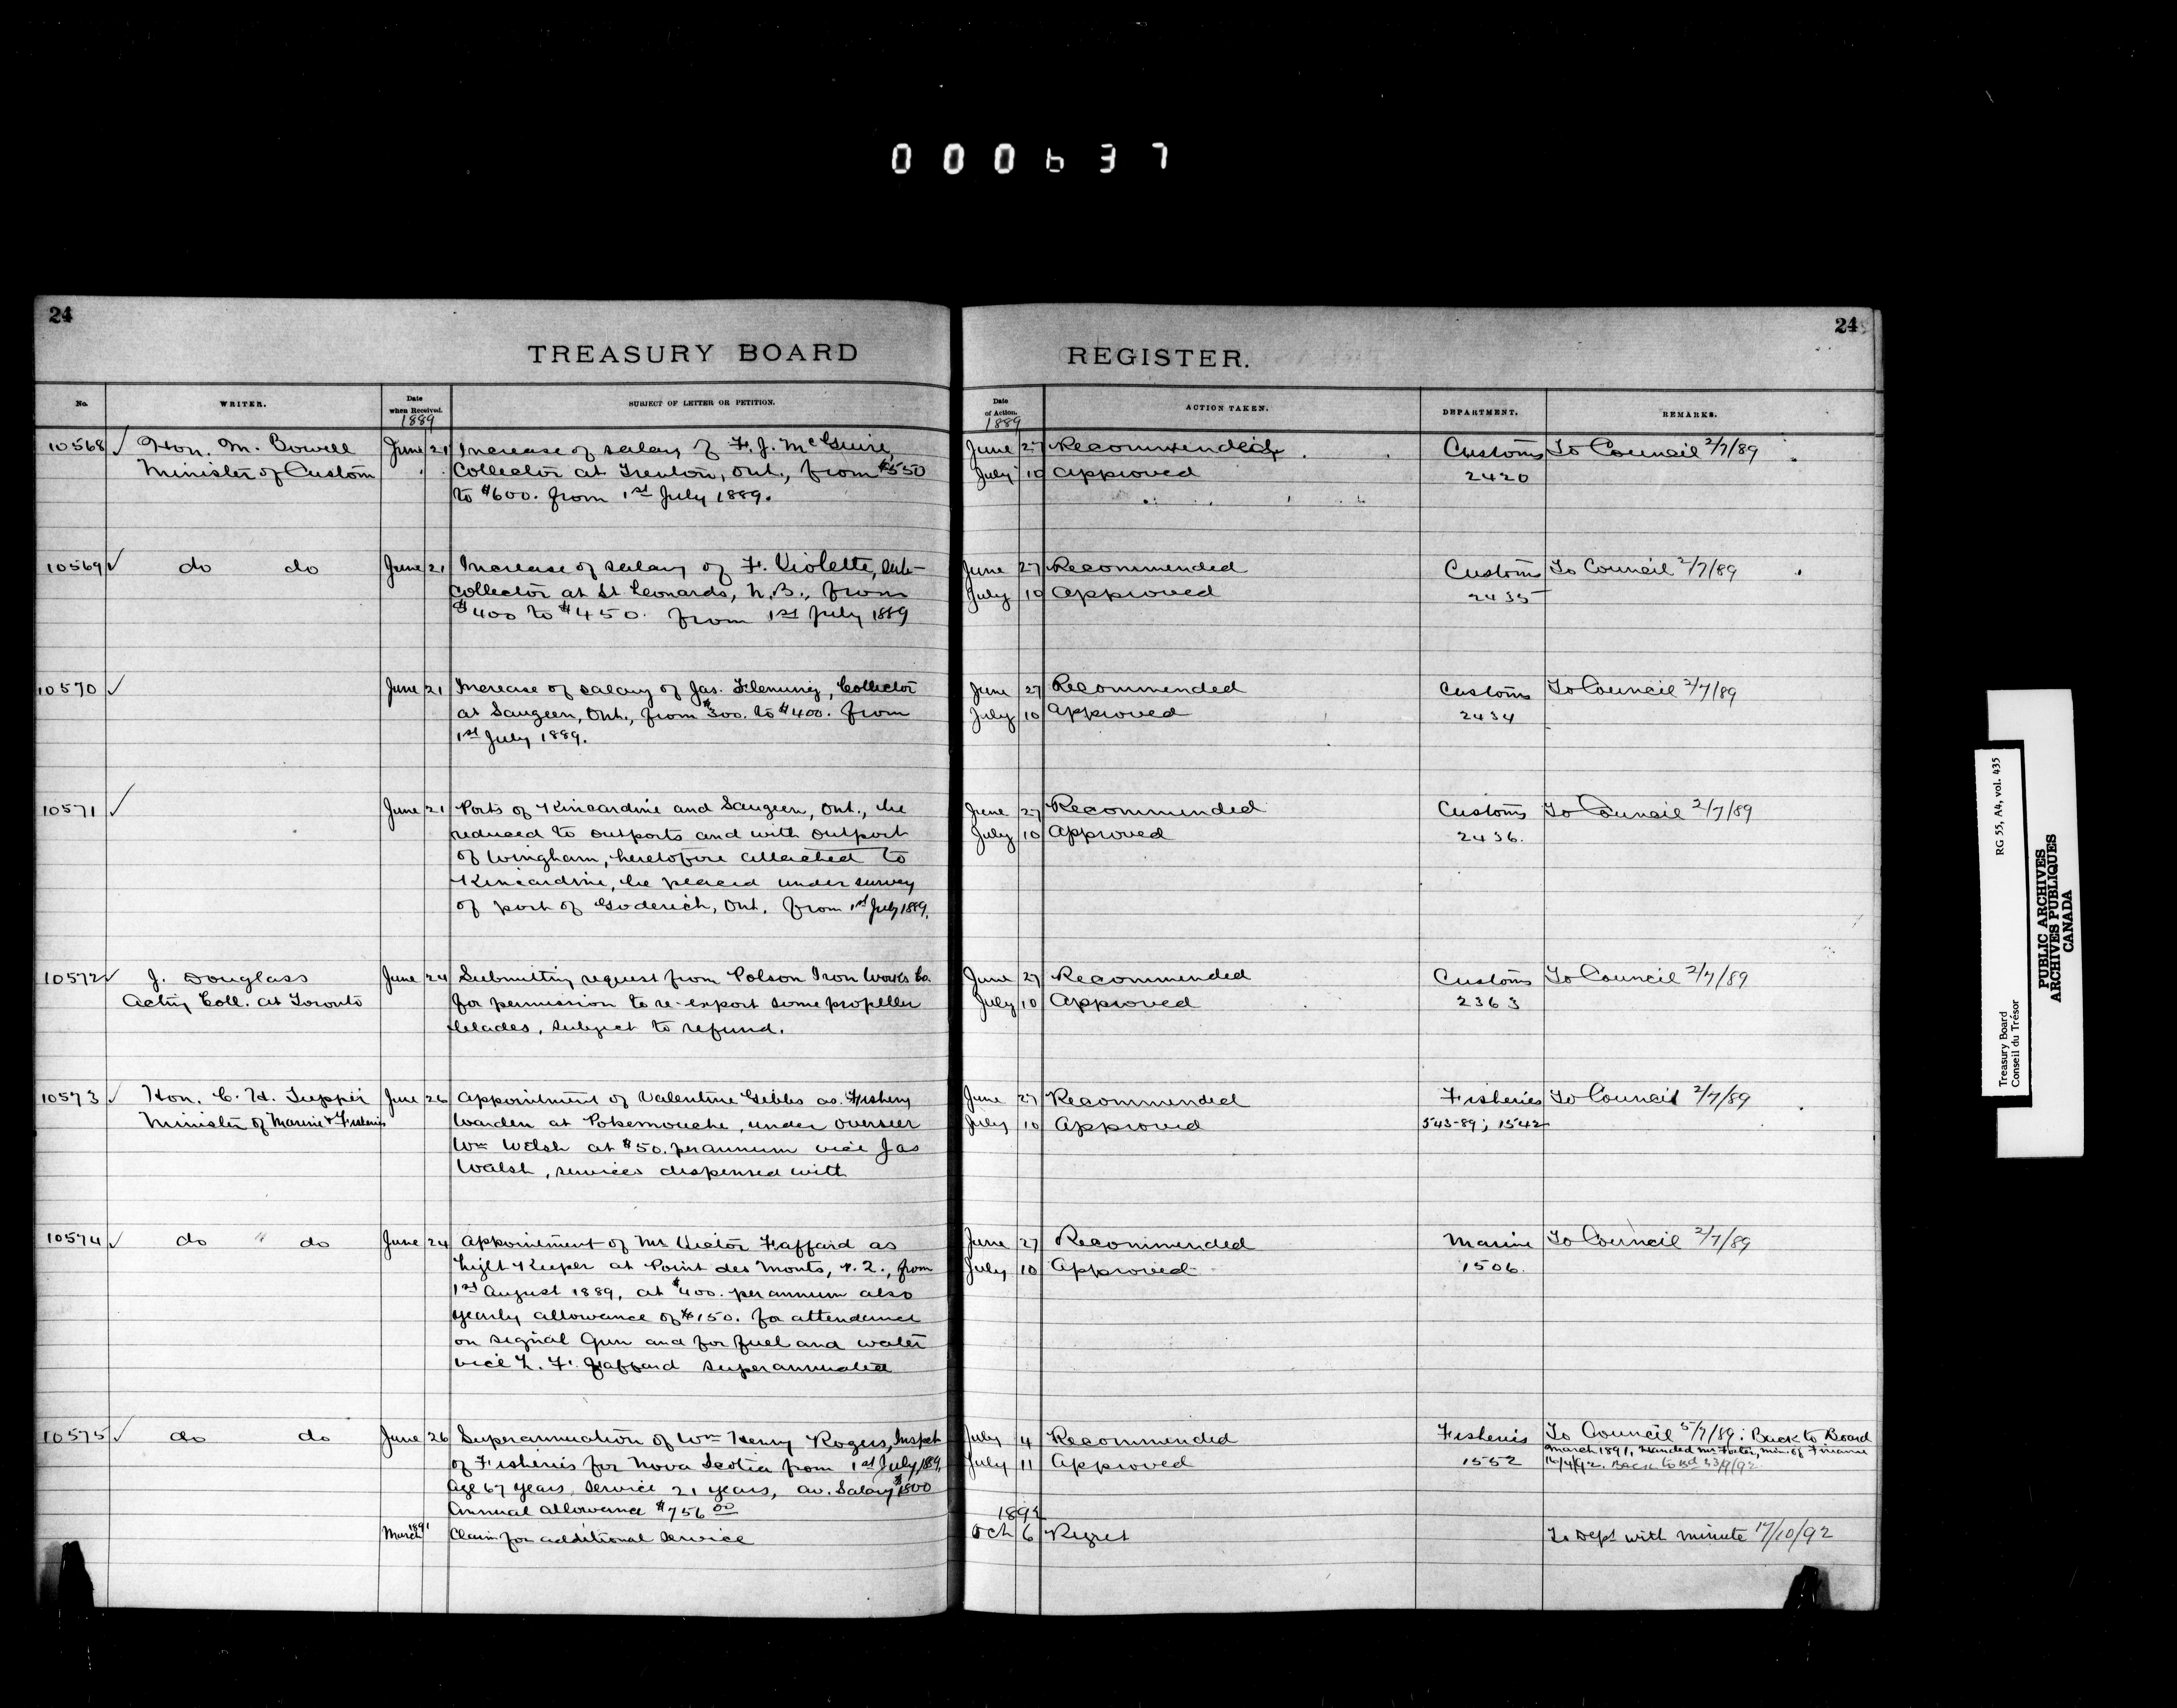 000637
24
24
TREASURY BOARD
REGISTER.
No.
WRITER.
Date when Received.
SUBJECT OF LETTER OR PETITION.
Date of Action.
ACTION TAKEN.
DEPARTMENT.
REMARKS.
1889
1889
10568 ✓ Hon. M. Bowell June 21 Increase of salary of F. J. McGuire, June 27 Recommended Customs To Council 2/7/89
Minister of Custom Collector at Trenton, Ont., from $550 July 10 Approved 2420
to $600. from 1st July 1889.
10569 ✓ do do June 21 Increase of salary of F. Violette, sub- June 27 Recommended Customs To Council 2/7/89
Collector at St Leonards, N.B., from July 10 Approved 2435
$400 to $450. from 1st July 1889
10570 ✓ June 21 Increase of salary of Jas. Flemming, Collector June 27 Recommended Customs To Council 2/7/89
at Saugeen, Ont., from $300. to $400. from July 10 Approved 2434
1st July 1889.
10571 ✓ June 21 Ports of Kincardine and Saugeen, Ont., be June 27 Recommended Customs To Council 2/7/89
reduced to outports and with outport July 10 Approved 2436.
of Wingham, heretofore attached to
Kincardine, be placed under survey
of port of Goderich, Ont. from 1st July 1889.
10572 ✓ J. Douglass June 24 Submitting request from Polson Iron Works Co. June 27 Recommended Customs To Council 2/7/89
Acting Coll. at Toronto for permission to re-export some propeller July 10 Approved 2363
blades, subject to refund.
10573 ✓ Hon. C. H. Tupper June 26 Appointment of Valentine Gibbs as Fishery June 27 Recommended Fisheries To Council 2/7/89
Minister of Marine & Fisheries Warden at Pokemouche, under overseer July 10 Approved 543-89; 1542
Wm Walsh at $50. per annum vice Jas
Walsh, services dispensed with
10574 ✓ do " do June 24 Appointment of Mr Victor Faffard as June 27 Recommended Marine To Council 2/7/89
Light Keeper at Point des Monts, P.Q., from July 10 Approved 1506.
1st August 1889, at $400. per annum also
yearly allowance of $150. for attendance
on signal Gun and for fuel and water
vice L. F. Faffard superannuated
10575 ✓ do do June 26 Superannuation of Wm Henry Rogers, Inspect July 4 Recommended Fisheries To Council 5/7/89: Back to Board
March 1891, Handed Mr Foster, Min. of Finance
of Fisheries for Nova Scotia from 1st July 1889, July 11 Approved 1552 Back to Bd
Age 67 years, service 21 years, av. Salary $1800
Annual allowance $756 00
March 1891 Claim for additional service 1892 Oct 6 Regret To Dept with minute 17/10/92
Treasury Board RG 55, A4, vol. 435
Conseil du Trésor
PUBLIC ARCHIVES
ARCHIVES PUBLIQUES
CANADA